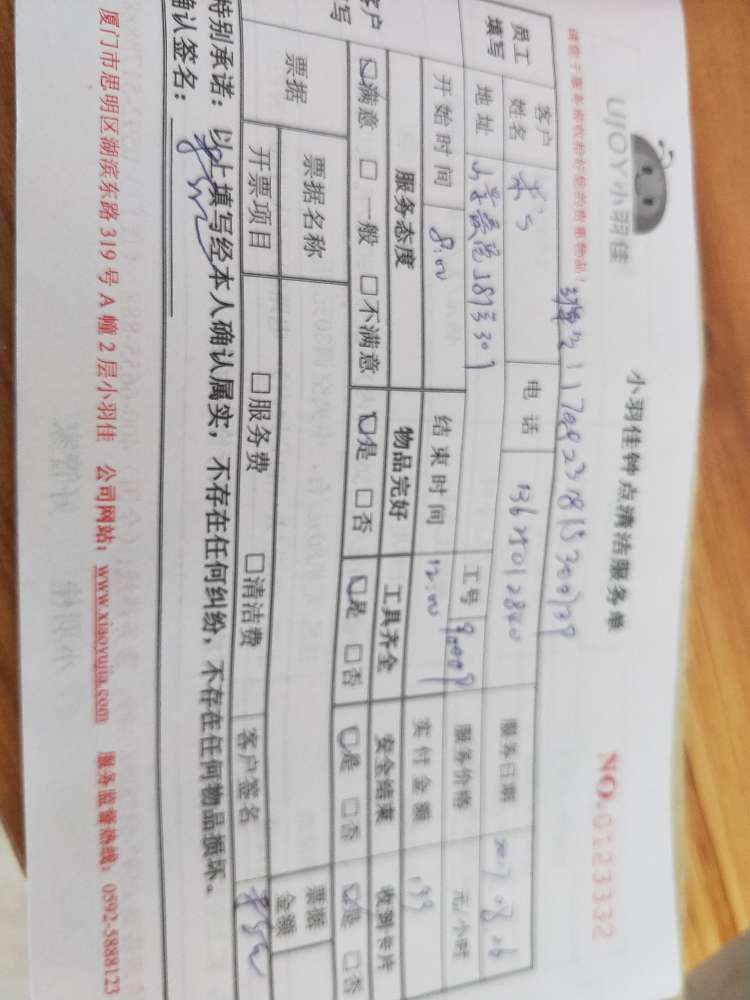 UJOY小羽佳
小羽佳钟点清洁服务单
NO.0123332
请您于服务前收拾好您的贵重物品！
员工填写
客户姓名
电话
服务日期
地址
工号
服务价格
元/小时
开始时间 8:00
结束时间 12:00
实付金额
客户
写
服务态度
物品完好
工具齐全
安全结束
收到卡片
☑满意 □一般 □不满意
☑是 □否
☑是 □否
☑是 □否
☑是 □否
票据
票据名称
票据金额
开票项目
□服务费
□清洁费
客户签名
特别承诺：以上填写经本人确认属实，不存在任何纠纷，不存在任何物品损坏。
确认签名：
厦门市思明区湖滨东路 319 号 A 幢 2 层小羽佳 公司网站：www.xiaoyujia.com 服务监督热线：0592-5888123